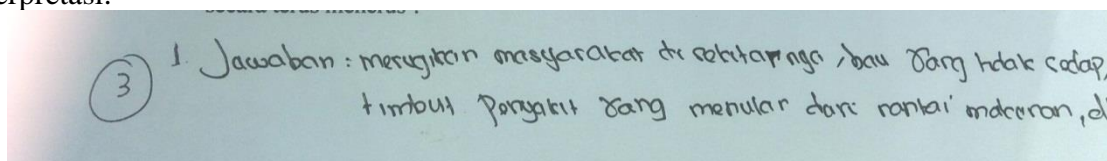 erpretasi.
3 1. Jawaban : merugikan masyarakat di sekitarnya, bau yang tidak sedap,
timbul penyakit yang menular dari rantai makanan, di